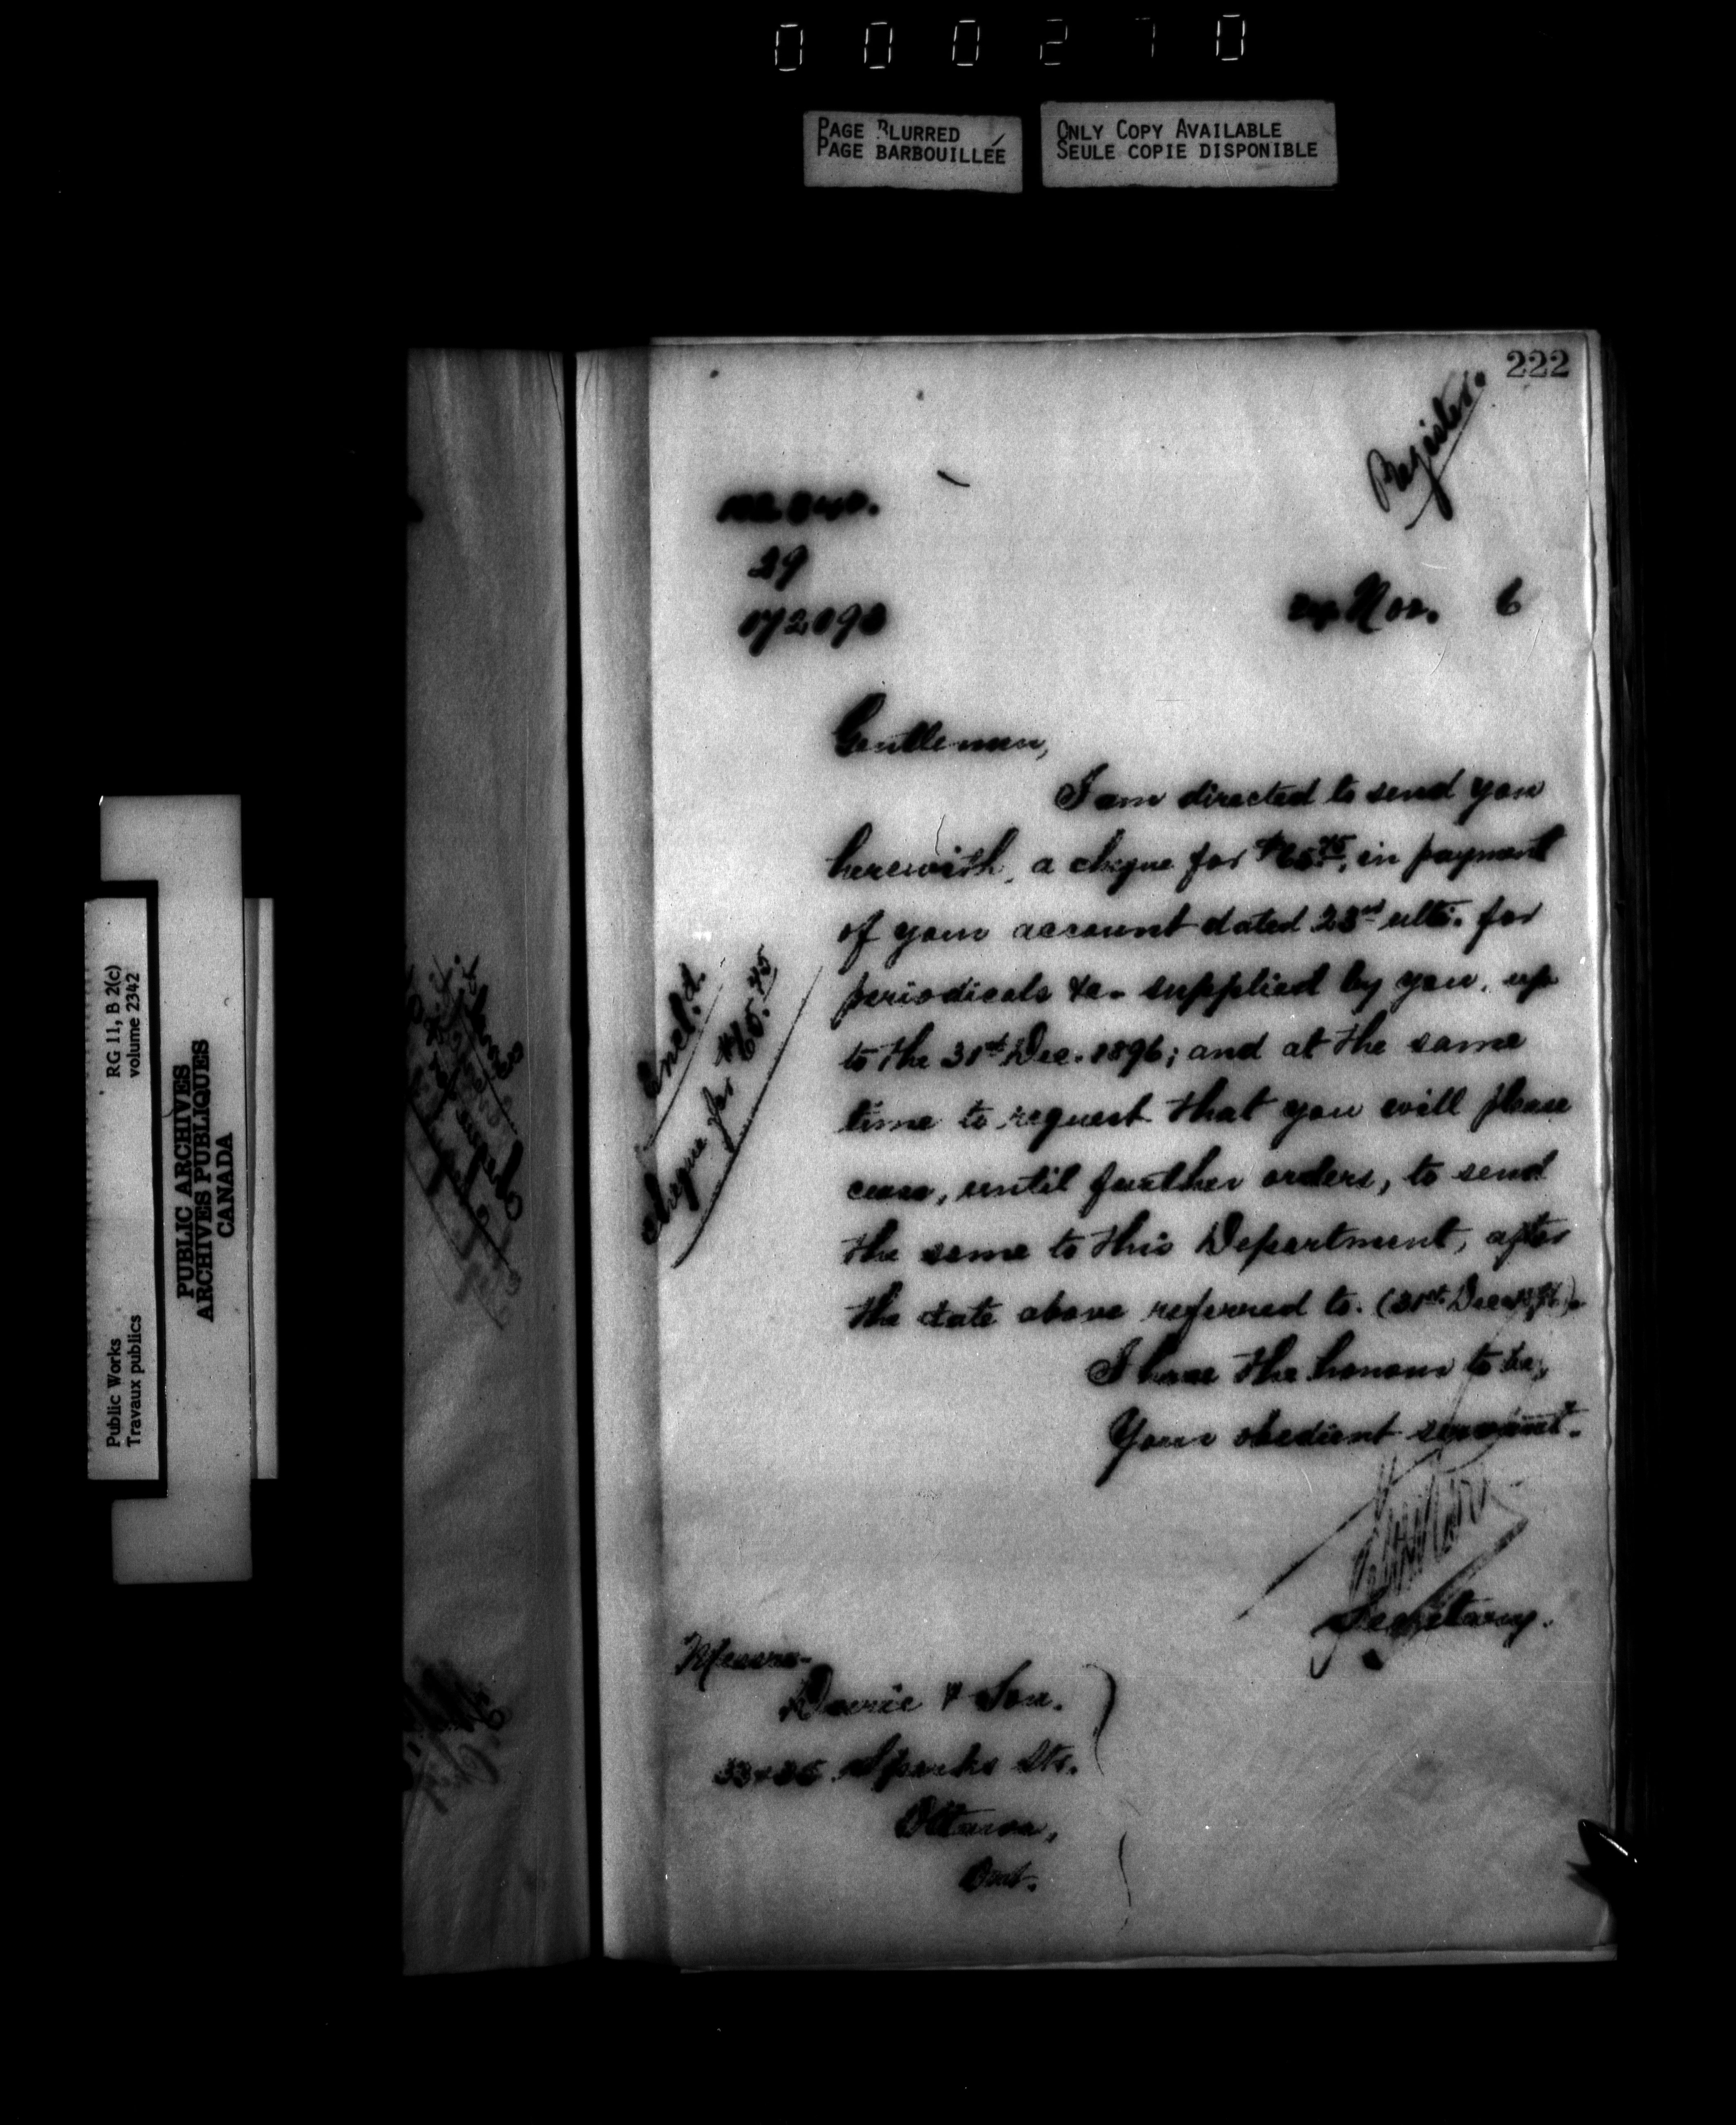 000270
PAGE BLURRED
PAGE BARBOUILLÉE
ONLY COPY AVAILABLE
SEULE COPIE DISPONIBLE
222
Register.
29
172090
Nov. 6
Gentlemen,
I am directed to send you
herewith, a cheque for $65.45, in payment
of your account dated 23rd ulto. for
periodicals &c. supplied by you, up
to the 31st Dec. 1896; and at the same
time to request that you will please
cease, until further orders, to send
the same to this Department, after
the date above referred to. (31st Dec. 1896).
I have the honour to be,
Your obedient servant.
Secretary.
Encl.d.
cheque for $65.45
Messrs.
& Son.
33 & 35 Sparks Sts.
Ottawa,
Ont.
Public Works
Travaux publics
RG 11, B 2(c)
volume 2342
PUBLIC ARCHIVES
ARCHIVES PUBLIQUES
CANADA